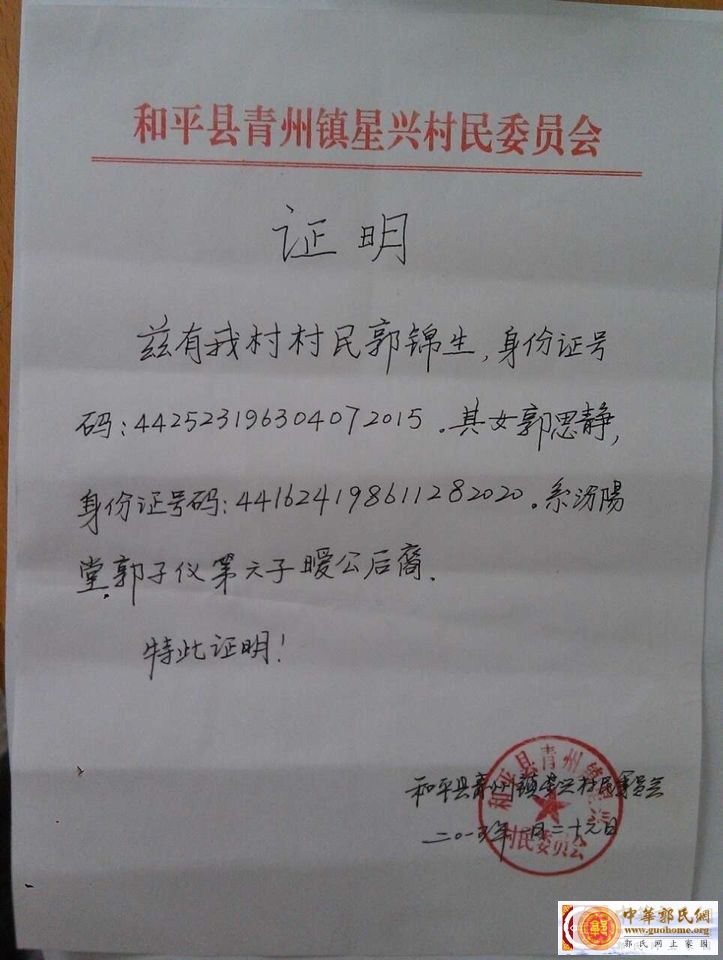 和平县青州镇星兴村民委员会
证明
兹有我村村民郭锦生,身份证号
码:442523196304072015。其女郭思静,
身份证号码:441624198611282020。系汾陽
堂.郭子仪第六子暧公后裔.
特此证明!
和平县青州镇星兴村民委员会
村民委员会
中華郭氏網
www.guohome.org
郭氏网上家园